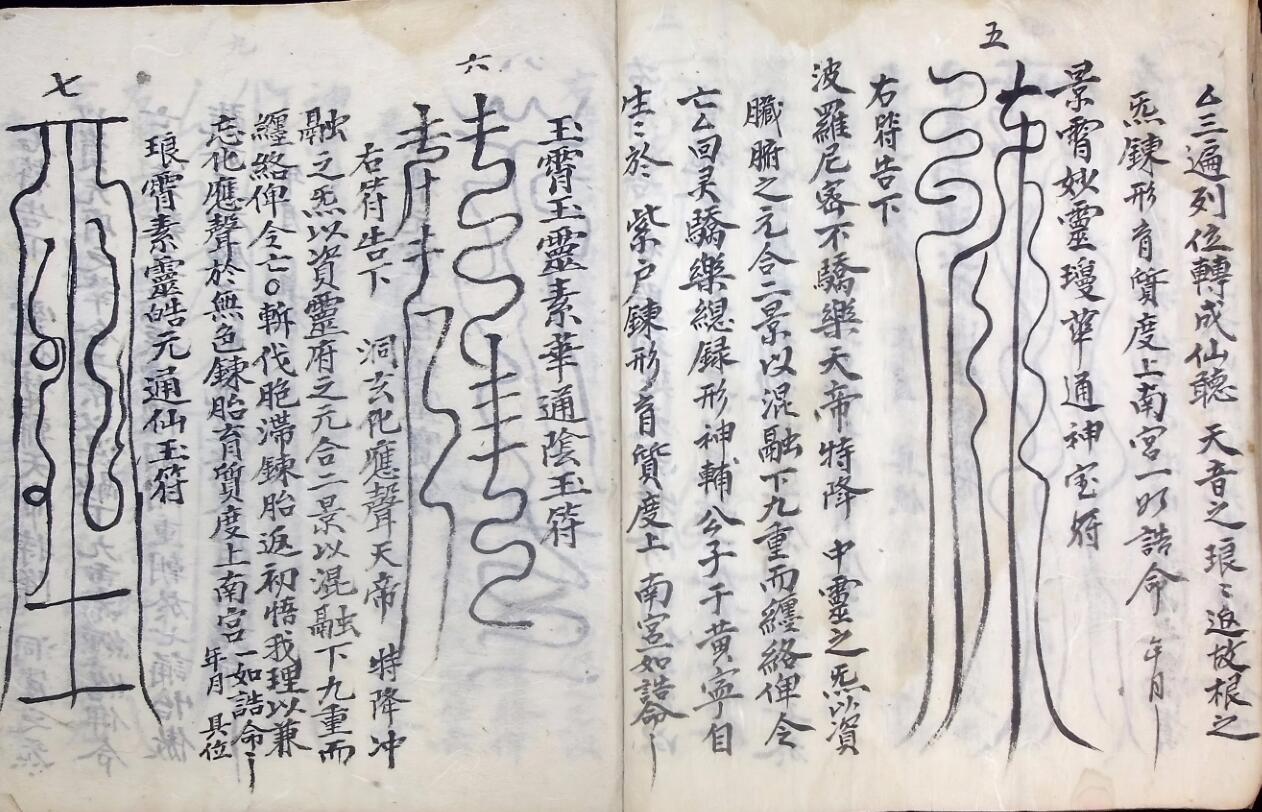 厶三遍列位轉成仙聽 天音之琅〻返故根之
炁鍊形育質度上南宮一如誥命 年月
景霄妙靈瓊華通神宝符
五
右符告下
波羅尼密不驕樂天帝特降 中靈之炁以資
臟腑之元合二景以混融下九重而纏絡俾令
亡厶回灵驕樂總録形神輔公子于黄寧自
生〻於 紫户鍊形育質度上南宮如誥命
玉霄玉靈素華通陰玉符
六
右符告下 洞玄化應聲天帝 特降冲
融之炁以資靈府之元合二景以混融下九重而
纏絡俾令亡〇斬伐胞滯鍊胎返初悟我理以兼
忘化應聲於無色鍊胎育質度上南宮一如誥命
年月 具位
琅霄素靈皓元通仙玉符
七